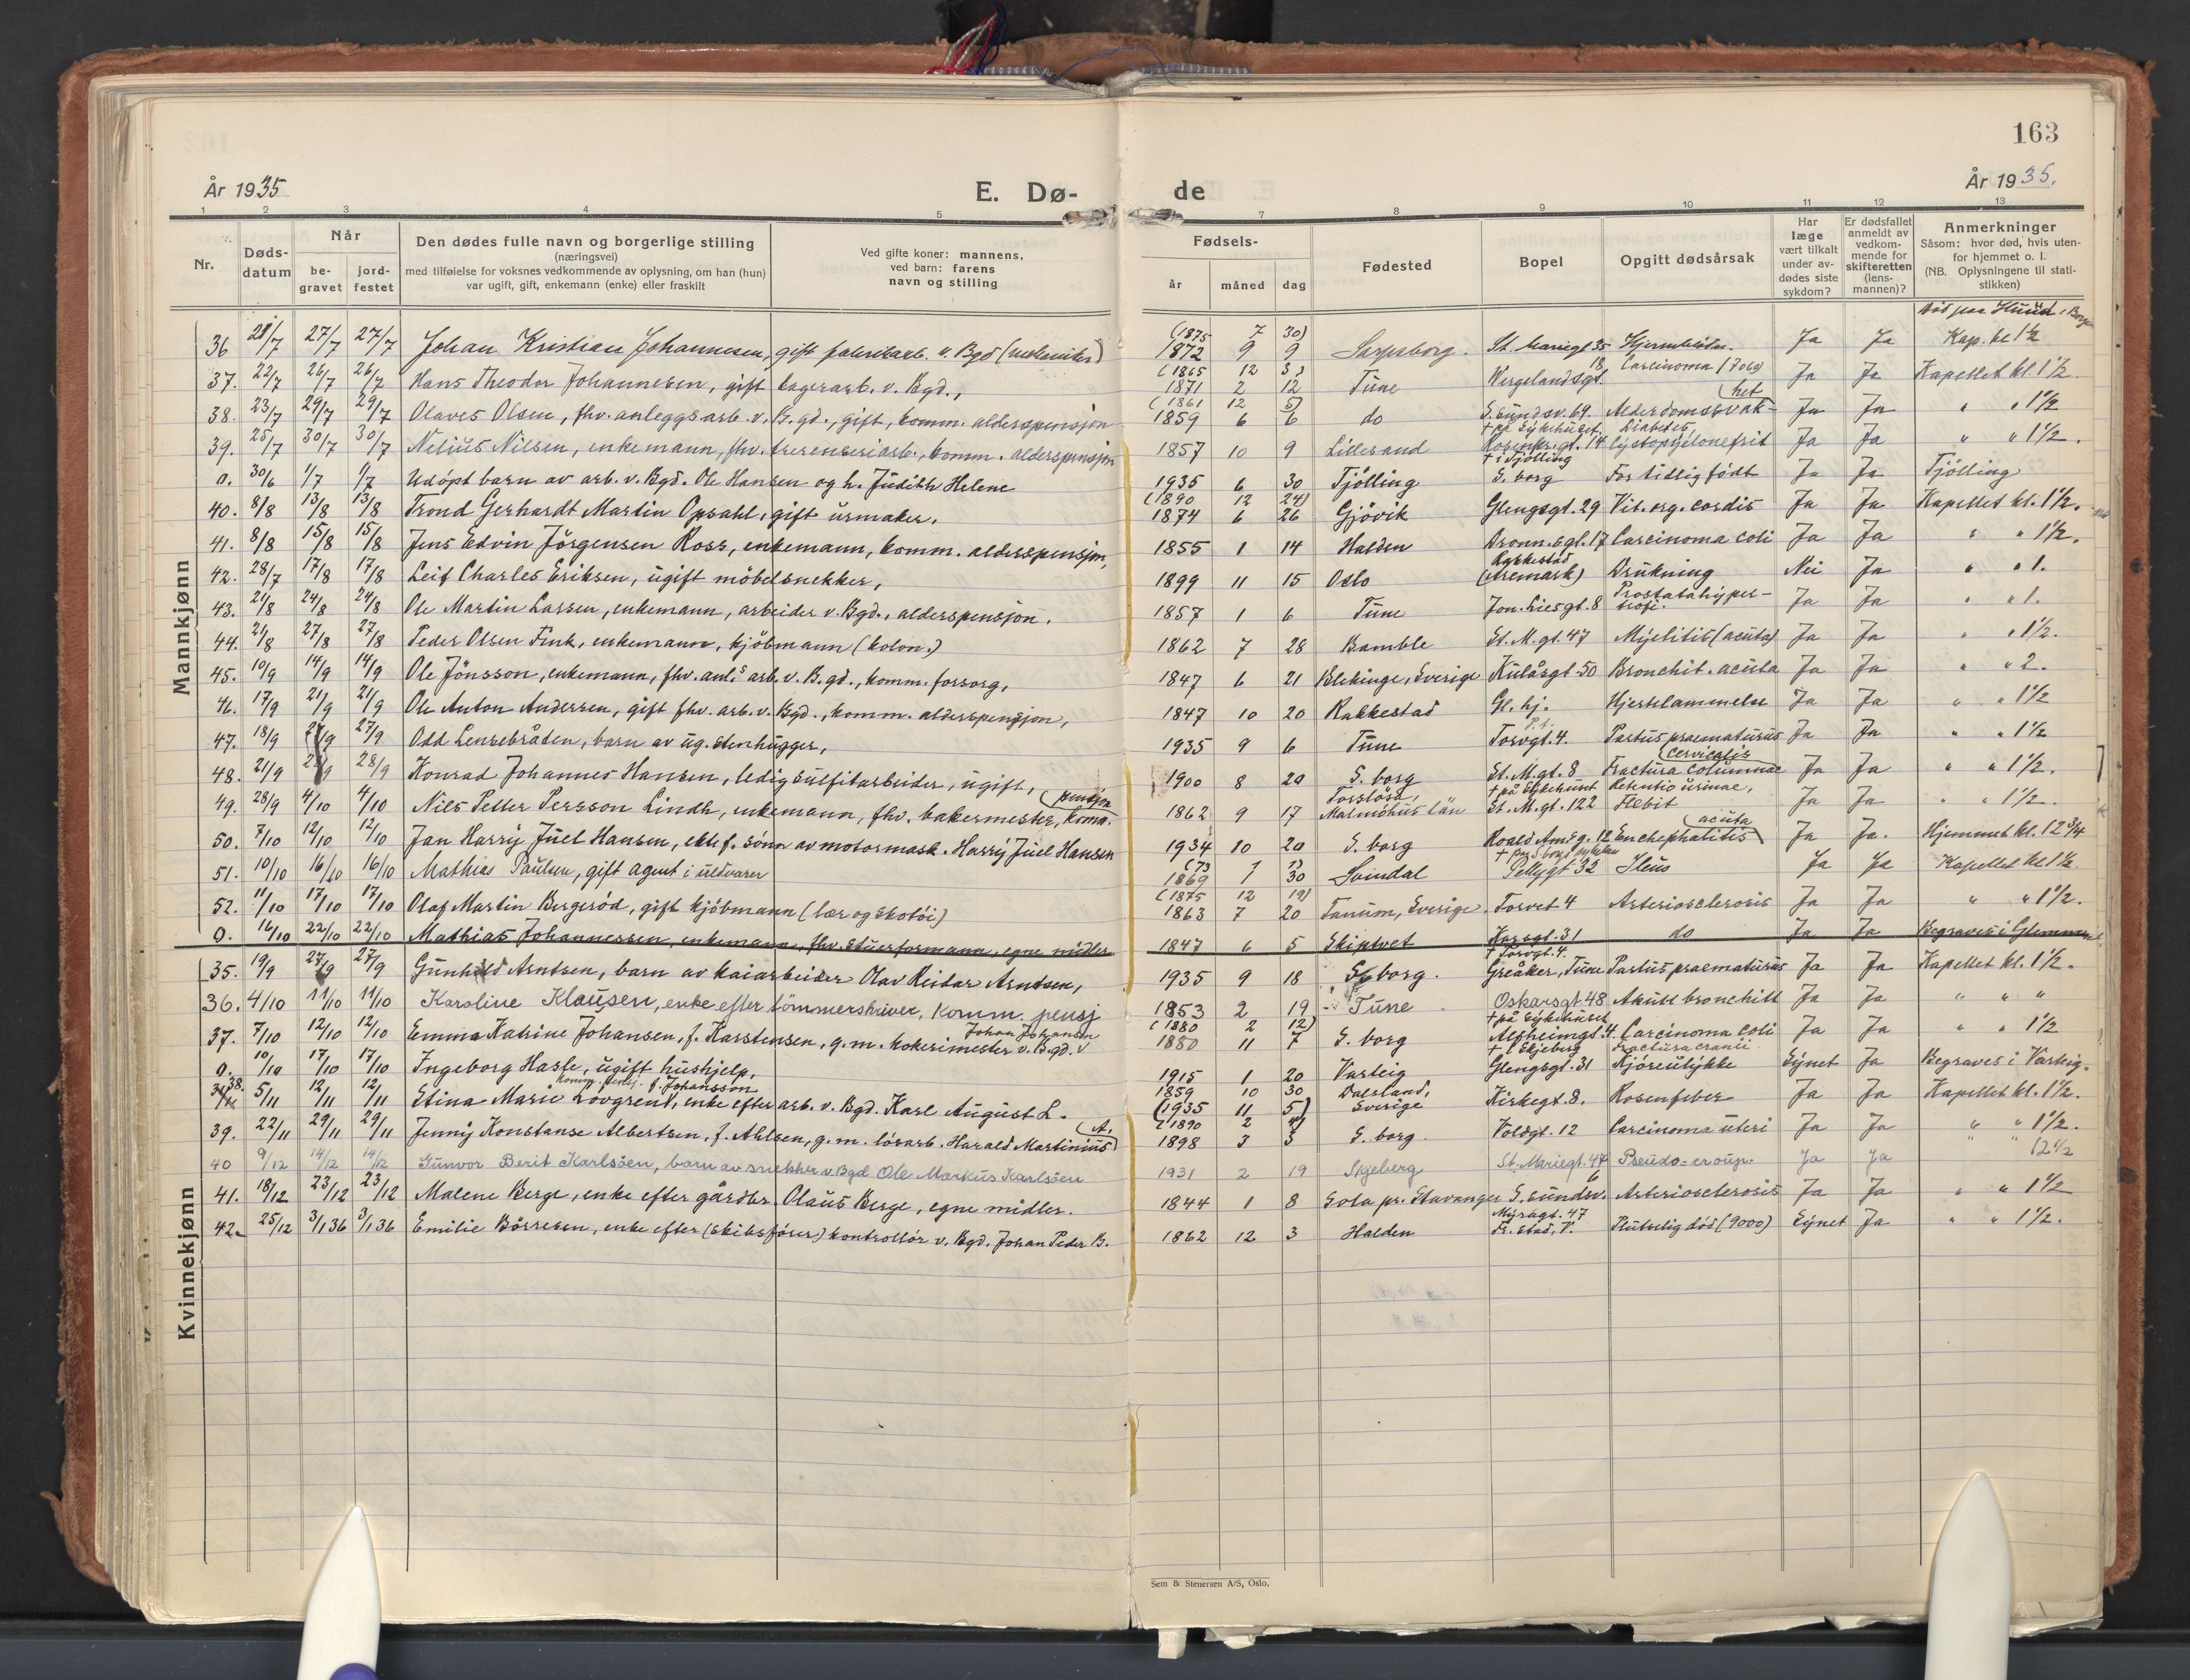 163
År 1935
E. Dø-
de
År 1935.
1 2 3 4 5 7 8 9 10 11 12 13
Nr. Døds-datum Når be-gravet jord-festet Den dødes fulle navn og borgerlige stilling (næringsvei) med tilføielse for voksnes vedkommende av oplysning, om han (hun) var ugift, gift, enkemann (enke) eller fraskilt Ved gifte koner: mannens, ved barn: farens navn og stilling Fødsels- år måned dag Fødested Bopel Opgitt dødsårsak Har læge vært tilkalt under av-dødes siste sykdom? Er dødsfallet anmeldt av vedkom-mende for skifteretten (lens-mannen)? Anmerkninger Såsom: hvor død, hvis uten-for hjemmet o. l. (NB. Oplysningene til stati-stikken)
Mannkjønn
36 21/7 27/7 27/7 Johan Kristian Johannesen, gift fabrikarb. v. Bgd (mekaniker) (1875 7 30) 1872 9 9 Sarpsborg. St. Mariegt 35 Ja Ja Kap. kl 1½
37. 22/7 26/7 26/7 Hans Theodor Johannesen, gift lagerarb. v. Bgd., (1865 12 3) 1871 2 12 Tune Wergelandsgt. 18 Carcinoma Ja Ja Kapellet kl. 1½.
38. 23/7 29/7 29/7 Olaves Olsen, fhv. anleggsarb. v. B.gd., gift, komm. alderspensjon (1861 12 5) 1859 6 6 do S. Sundsv. 69. Alderdomssvak-het Ja Ja " " 1½
39. 25/7 30/7 30/7 Nelius Nilsen, enkemann, fhv. tresenseriarb., komm. alderspensjon 1857 10 9 Lillesand † på Sykehuset Rosenkr.gt. 14 Diabetes, Cystopyelonefrit Ja Ja " " 1½.
0. 30/6 1/7 1/7 Udøpt barn av arb. v. Bgd. Ole Hansen og h. Judith Helene 1935 6 30 Tjølling † i Tjølling S. borg For tidlig født Ja Ja Tjølling
40. 8/8 13/8 13/8 Trond Gerhardt Martin Opsahl, gift urmaker. (1890 12 24) 1874 6 26 Gjøvik Glengsgt. 29 Vit. org. cordis Ja Ja Kapellet kl. 1½.
41. 8/8 15/8 15/8 Jens Edvin Jörgensen Ross, enkemann, komm. alderspensjon, 1855 1 14 Halden Dronn.sgt. 17 Carcinoma coli Ja Ja " " 1½.
42. 28/7 17/8 17/8 Leif Charles Eriksen, ugift möbelsnekker, 1899 11 15 Oslo (Aremark) Drukning Nei Ja " " 1.
43. 21/8 24/8 24/8 Ole Martin Larsen, enkemann, arbeider v. Bgd., alderspensjon. 1857 1 6 Tune Jon. Liesgt. 8 Prostatahyper-trofi. Ja Ja " " 1.
44. 21/8 27/8 27/8 Peder Olsen Fink, enkemann, kjöbmann (kolon.) 1862 7 28 Bamble St. M. gt. 47 Myelitis (acuta) Ja Ja " " 1½.
45. 10/9 14/9 14/9 Ole Jönsson, enkemann, fhv. anl.s arb. v. B.gd., komm. forsorg, 1847 6 21 Blekinge, Sverige Kulåsgt. 50 Bronchit. acuta Ja Ja " " 2.
46. 17/9 21/9 21/9 Ole Anton Andersen, gift fhv. arb. v. Bgd., komm. alderspensjon, 1847 10 20 Rakkestad Gl. hj. Hjertelammelse Ja Ja " " 1½
47. 18/9 27/9 27/9 Odd Lensebråten, barn av ug. stenhugger, 1935 9 6 Tune P.t. Torvgt. 4. Partus praematurus Ja Ja " " 1½
48. 21/9 28/9 28/9 Konrad Johannes Hansen, ledig sulfitarbeider, ugift, 1900 8 20 S. borg St. M. gt. 8 Fractura columnae cervicalis Ja Ja " " 1½.
49. 28/9 4/10 4/10 Nils Petter Persson Lindh, enkemann, fhv. bakermester, komm. pensjon 1862 9 17 Torslösa, Malmöhus län † på Sykehuset St. M. gt. 122 Retentio urinae, Flebit Ja Ja " " 1½.
50. 7/10 12/10 12/10 Jan Harry Juel Hansen, ektef. sönn av motormask. Harry Juel Hansen 1934 10 20 S. borg Roald Am.s g. 12 Enchephalitis acuta Ja Ja. Hjemmet kl. 12¾
51. 10/10 16/10 16/10 Mathias Paulsen, gift agent i uldvarer (73 7 13 1869 1 30 Svindal Pellygt 32 Ileus Ja Ja Kapellet kl 1½
52. 11/10 17/10 17/10 Olaf Martin Bergeröd, gift kjöbmann (lær og skotöi) (1875 12 19) 1863 7 20 Tanum, Sverige. Torvet 4 Arteriosclerosis Ja Ja " " 1½.
0. 16/10 22/10 22/10 Mathias Johannessen, enkemann, fhv. stuerformann, egne midler 1847 6 5 Skiptvet Korsgt. 31 do Ja Ja Begraves i Glemmen
Kvinnekjønn
35. 19/9 27/9 27/9 Gunhild Arntsen, barn av kaiarbeider Olav Reidar Arntsen, 1935 9 18 S. borg. † Torvgt. 4. Greåker, Tune Partus praematurus Ja Ja Kapellet kl. 1½.
36. 4/10 11/10 11/10 Karoline Klausen, enke efter tömmerskriver, komm. pensj 1853 2 19 Tune Oskarsgt 48 Akutt bronchitt Ja Ja " " "
37. 7/10 12/10 12/10 Emma Katrine Johansen, f. Karstensen, g. m. kokerimester v. Bgd. Johan Johansen (1880 2 12) 1880 11 7 S. borg † på Sykehuset Alfheimgt. 4. Carcinoma coli Ja Ja " " 1½
0. 10/10 17/10 17/10 Ingeborg Hasle, ugift hushjelp, 1915 1 20 Varteig † i Skjeberg Glengsgt. 31 Fractura cranii Kjöreulykke Synet Ja Begraves i Varteig.
38. 5/11 12/11 12/11 Stina Marie Lövgrent, komm. pensj. f. Johansson enke efter arb. v. Bgd. Karl August L. 1859 10 30 (1935 11 5) Dalsland, Sverige Kirkegt. 8. Rosenfeber Ja Ja Kapellet kl. 1½.
39. 22/11 29/11 29/11 Jenny Konstanse Albertsen, f. Ahlsen, g. m. lösarb. Harald Martinius A. (1890 2 4) 1898 3 3 S. borg. Voldgt. 12 Carcinoma uteri Ja Ja " " 1½.
40 9/12 14/12 14/12 Gunvor Berit Karlsöen, barn av snekker v. Bgd Ole Markus Karlsöen 1931 2 19 Skjeberg St. Mariegt. 44 Pseudo-croup. Ja Ja " " 12½
41. 18/12 23/12 23/12 Malene Berge, enke efter gårdbr. Olaus Berge, egne midler. 1844 1 8 Sola pr. Stavanger S. Sundsv. 6 Arteriosclerosis Ja Ja " " 1½
42. 25/12 3/1 36 3/1 36 Emilie Börresen, enke efter (skibsförer) kontrollör v. Bgd. Johan Peder B. 1862 12 3 Halden Myragt. 47 Fr. stad, V. Plutselig död (9000) Synet Ja " " 1½.
Sem & Stenersen A/S, Oslo.